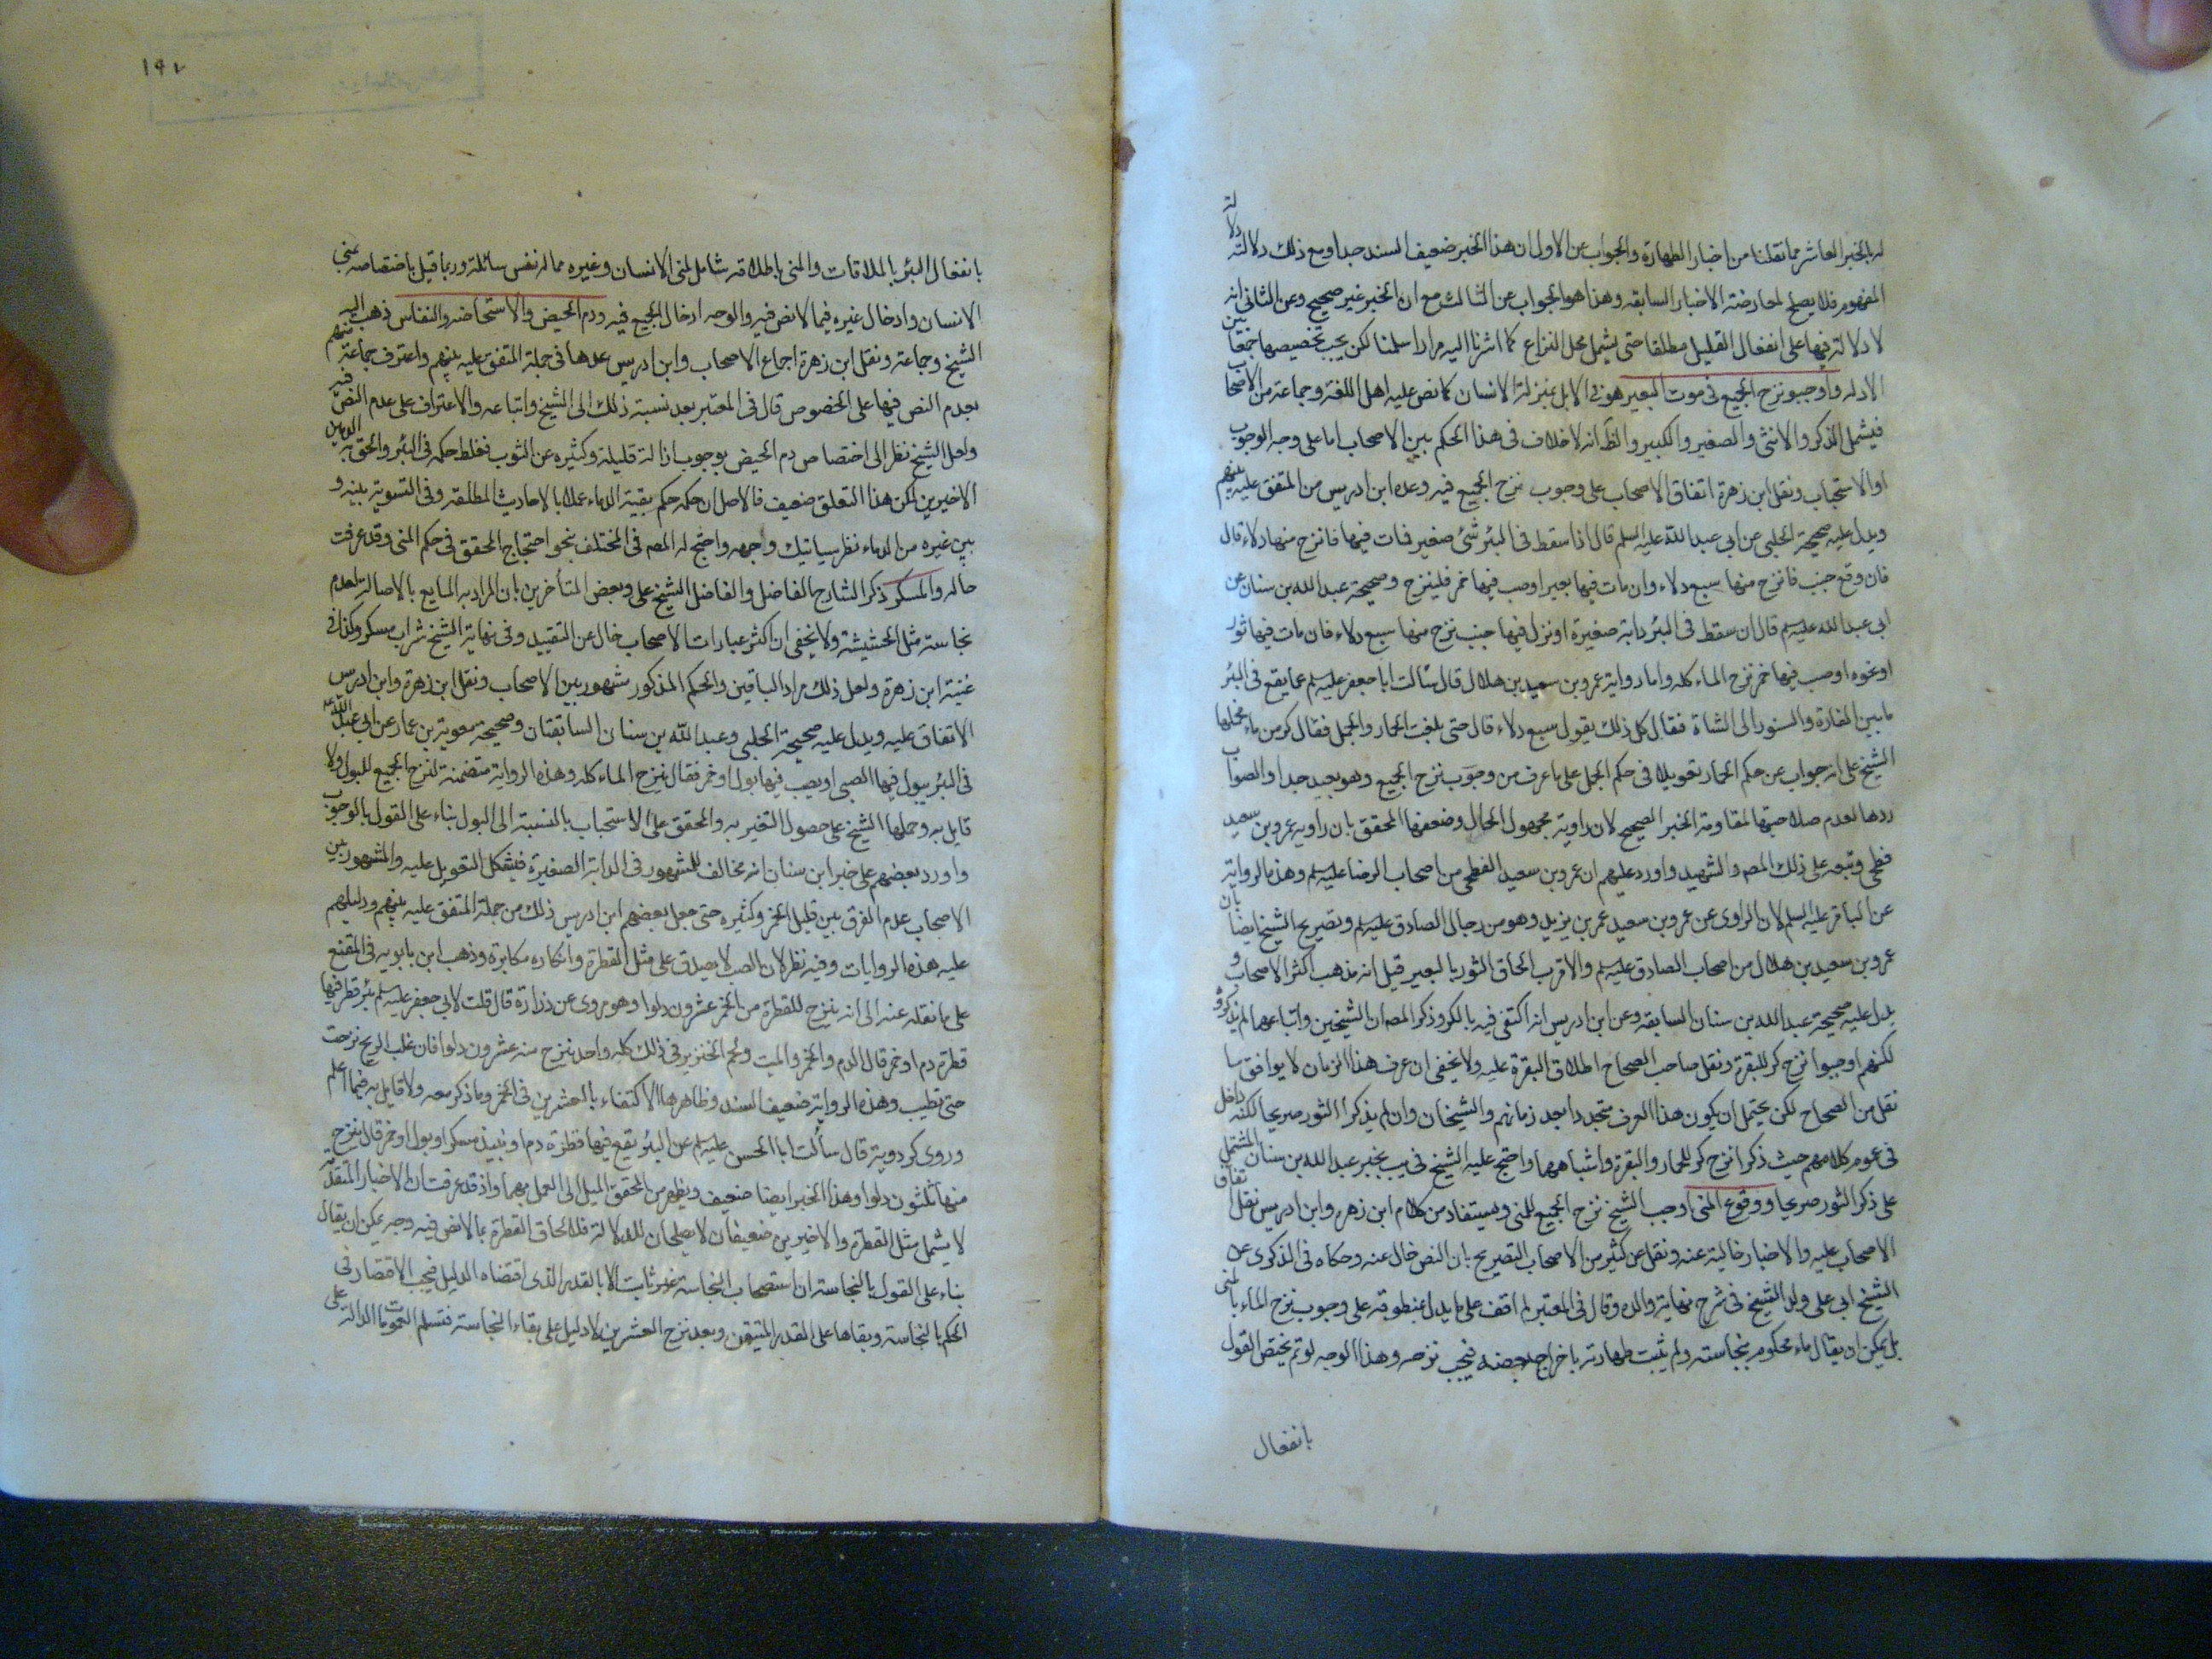 له بالخبر العاشر مما نقلنا من اخبار الطهارة والجواب عن الاول ان هذا الخبر ضعيف السند جدا ومع ذلك دلالته دلالة
المفهوم فلا يصلح لمعارضة الاخبار السابقه وهذا هو الجواب عن الثالث مع ان الخبر غير صحيح وعن الثانى انه
لا دلالة فيها على انفعال القليل مطلقا حتى يشمل محل النزاع كما اشرنا اليه مرارا سلمنا لكن يجب تخصيصها جمعا بين
الادله واوجبو نزح الجميع فى موت البعير هو فى الابل بمنزلة الانسان كما نص عليه اهل اللغة وجماعة من الاصحاب
فيشمل الذكر والانثى والصغير والكبير والظ انه لا خلاف فى هذا الحكم بين الاصحاب اما على وجه الوجوب
او الاستحباب ونقل ابن زهرة اتفاق الاصحاب على وجوب نزح الجميع فيه وعده ابن ادريس من المتفق عليه بينهم
ويدل عليه صحيحة الحلبى عن ابى عبد الله عليه السلم قال اذا سقط فى البئر شئ صغير فمات فيها فانزح منها دلاء قال
فان وقع جنب فانزح منها سبع دلاء وان مات فيها بعير او صب فيها خمر فلينزح وصحيحة عبد الله بن سنان عن
ابى عبد الله عليه السلم قال ان سقط فى البئر دابة صغيرة او نزل فيها جنب نزح منها سبع دلاء فان مات فيها ثور
او نحوه او صب فيها خمر نزح الماء كله واما رواية عمرو بن سعيد بن هلال قال سالت ابا جعفر عليه السلم عما يقع فى البئر
ما بين الفارة والسنور الى الشاة فقال كل ذلك يقول سبع دلاء قال حتى بلغت الحمار والجمل فقال كر من ماء فحملها
الشيخ على انه جواب عن حكم الحمار تعويلا فى حكم الجمل على ما عرف من وجوب نزح الجميع وهو بعيد جدا والصواب
ردها لعدم صلاحيتها لمقاومة الخبر الصحيح لان راوية مجهول الحال وضعفها المحقق بان راويه عمرو بن سعيد
فطحى وتبعه على ذلك المصـ والشهيد واورد عليهم ان عمرو بن سعيد الفطحى من اصحاب الرضا عليه السلم وهذه الرواية
عن الباقر عليه السلم لان الراوى عن عمرو بن سعيد عمر بن يزيد وهو من رجال الصادق عليه السلم وتصريح الشيخ ايضا بان
عمرو بن سعيد بن هلال من اصحاب الصادق عليه السلم والاقرب الحاق الثور بالبعير قيل انه مذهب اكثر الاصحاب و
يدل عليه صحيحة عبد الله بن سنان السابقه وعن ابن ادريس انه اكتفى فيه بالكر وذكر المصـ ان الشيخين واتباعهما لم يذكروه
لكنهم اوجبوا نزح كر للبقرة ونقل صاحب الصحاح اطلاق البقرة عليه ولا يخفى ان عرف هذا الزمان لا يوافق ما
نقل من الصحاح لكن يحتمل ان يكون هذا العرف متجددا بعد زمانهم والشيخان وان لم يذكرا الثور صريحا لكنه داخل
فى عموم كلامهم حيث ذكرا نزح كر للحمار والبقرة واشباههما واحتج عليه الشيخ فى يب بخبر عبد الله بن سنان المشتمل
على ذكر الثور صريحا ووقوع المنى اوجب الشيخ نزح الجميع للمنى ويستفاد من كلام ابن زهره وابن ادريس نقل اتفاق
الاصحاب عليه والاخبار خالية عنه ونقل عن كثير من الاصحاب التصريح بان النص خال عنه وحكاه فى الذكرى عن
الشيخ ابى على ولد الشيخ فى شرح نهاية والده وقال فى المعتبر لم اقف على ما يدل بمنطوقه على وجوب نزح الماء بالمنى
بل يمكن ان يقال ماء محكوم بنجاسته ولم يثبت طهارته باخراج بعضه فيجب نزحه وهذا الوجه لو تم يختص القول
بانفعال
١٩٧
بانفعال البئر بالملاقات والمنى باطلاقه شامل لمنى الانسان وغيره مما له نفس سائلة وربما قيل باختصاصه بمنى
الانسان وادخال غيره فيما لا نص فيه والوجه ادخال الجميع فيه ودم الحيض والاستحاضه والنفاس ذهب اليه
الشيخ وجماعة ونقل ابن زهرة اجماع الاصحاب وابن ادريس عدها فى جملة المتفق عليه بينهم واعترف جماعة منهم
بعدم النص فيها على الخصوص قال فى المعتبر بعد نسبة ذلك الى الشيخ واتباعه والاعتراف على عدم النص فيه
ولعل الشيخ نظر الى اختصاص دم الحيض بوجوب ازالة قليلة وكثيره عن الثوب فغلظ حكمه فى البئر والحق به الدمين
الاخيرين لكن هذا التعلق ضعيف فالاصل ان حكمه حكم بقية الدماء عملا بالاحاديث المطلقه وفى التسوية بينه و
بين غيره من الدماء نظر سياتيك وجهه واحتج له المصـ فى المختلف بنحو احتجاج المحقق فى حكم المنى وقد عرفت
حاله والمسكر ذكر الشارح الفاضل والفاضل الشيخ على وبعض المتأخرين بان المراد به المايع بالاصالة لعدم
نجاسته مثل الحشيشة ولا يخفى ان اكثر عبارات الاصحاب خال عن التقييد وفى نهاية الشيخ شراب مسكر وكذا فى
غنية ابن زهرة ولعل ذلك مراد الباقين والحكم المذكور مشهور بين الاصحاب ونقل ابن زهرة وابن ادريس
الاتفاق عليه ويدل عليه صحيحة الحلبى وعبد الله بن سنان السابقتان وصحيحة معوية بن عمار عن ابى عبد الله عه
فى البئر يبول فيها الصبى او يصب فيها بول او خمر فقال ينزح الماء كله وهذه الرواية متضمنة لنزح الجميع للبول ولا
قايل به وحملها الشيخ على حصول التغير به والمحقق على الاستحباب بالنسبة الى البول بناء على القول بالوجوب
واورد بعضهم على خبر ابن سنان انه مخالف للمشهور فى الدابة الصغيرة فيشكل التعويل عليه والمشهور بين
الاصحاب عدم الفرق بين قليل الخمر وكثيره حتى جعل بعضهم ابن ادريس ذلك من جملة المتفق عليه بينهم ودليلهم
عليه هذه الروايات وفيه نظر لان الصب لا يصدق على مثل القطرة وانكاره مكابرة وذهب ابن بابويه فى المقنع
على ما نقله عنه الى انه ينزح للقطرة من الخمر عشرون دلوا وهو مروى عن زرارة قال قلت لابى جعفر عليه السلم بئر قطر فيها
قطرة دم او خمر قال الدم والخمر والميت ولحم الخنزير فى ذلك كله واحد ينزح منه عشرون دلوا فان غلب الريح نزحت
حتى تطيب وهذه الرواية ضعيف السند وظاهرها الاكتفاء بالعشرين فى الخمر وما ذكر معه ولا قايل به فيما اعلم
وروى كردوية قال سألت ابا الحسن عليه السلم عن البئر يقع فيها قطرة دم او نبيذ مسكر او بول او خمر قال ينزح
منها ثلثون دلوا وهذا الخبر ايضا ضعيف ويظهر من المحقق الميل الى العمل بهما واذ قد عرفت ان الاخبار المتقدمة
لا يشمل مثل القطرة والاخيرين ضعيفان لا يصلحان للدلالة فلالحاق القطرة بما لا نص فيه وجه يمكن ان يقال
بناء على القول بالنجاسة ان استصحاب النجاسة غير ثابت الا بالقدر الذى اقتضاه الدليل فيجب الاقتصار فى
الحكم بالنجاسة وبقاها على القدر المتيقن وبعد نزح العشرين لا دليل على بقاء النجاسة فتسلم العمومات الدالة على